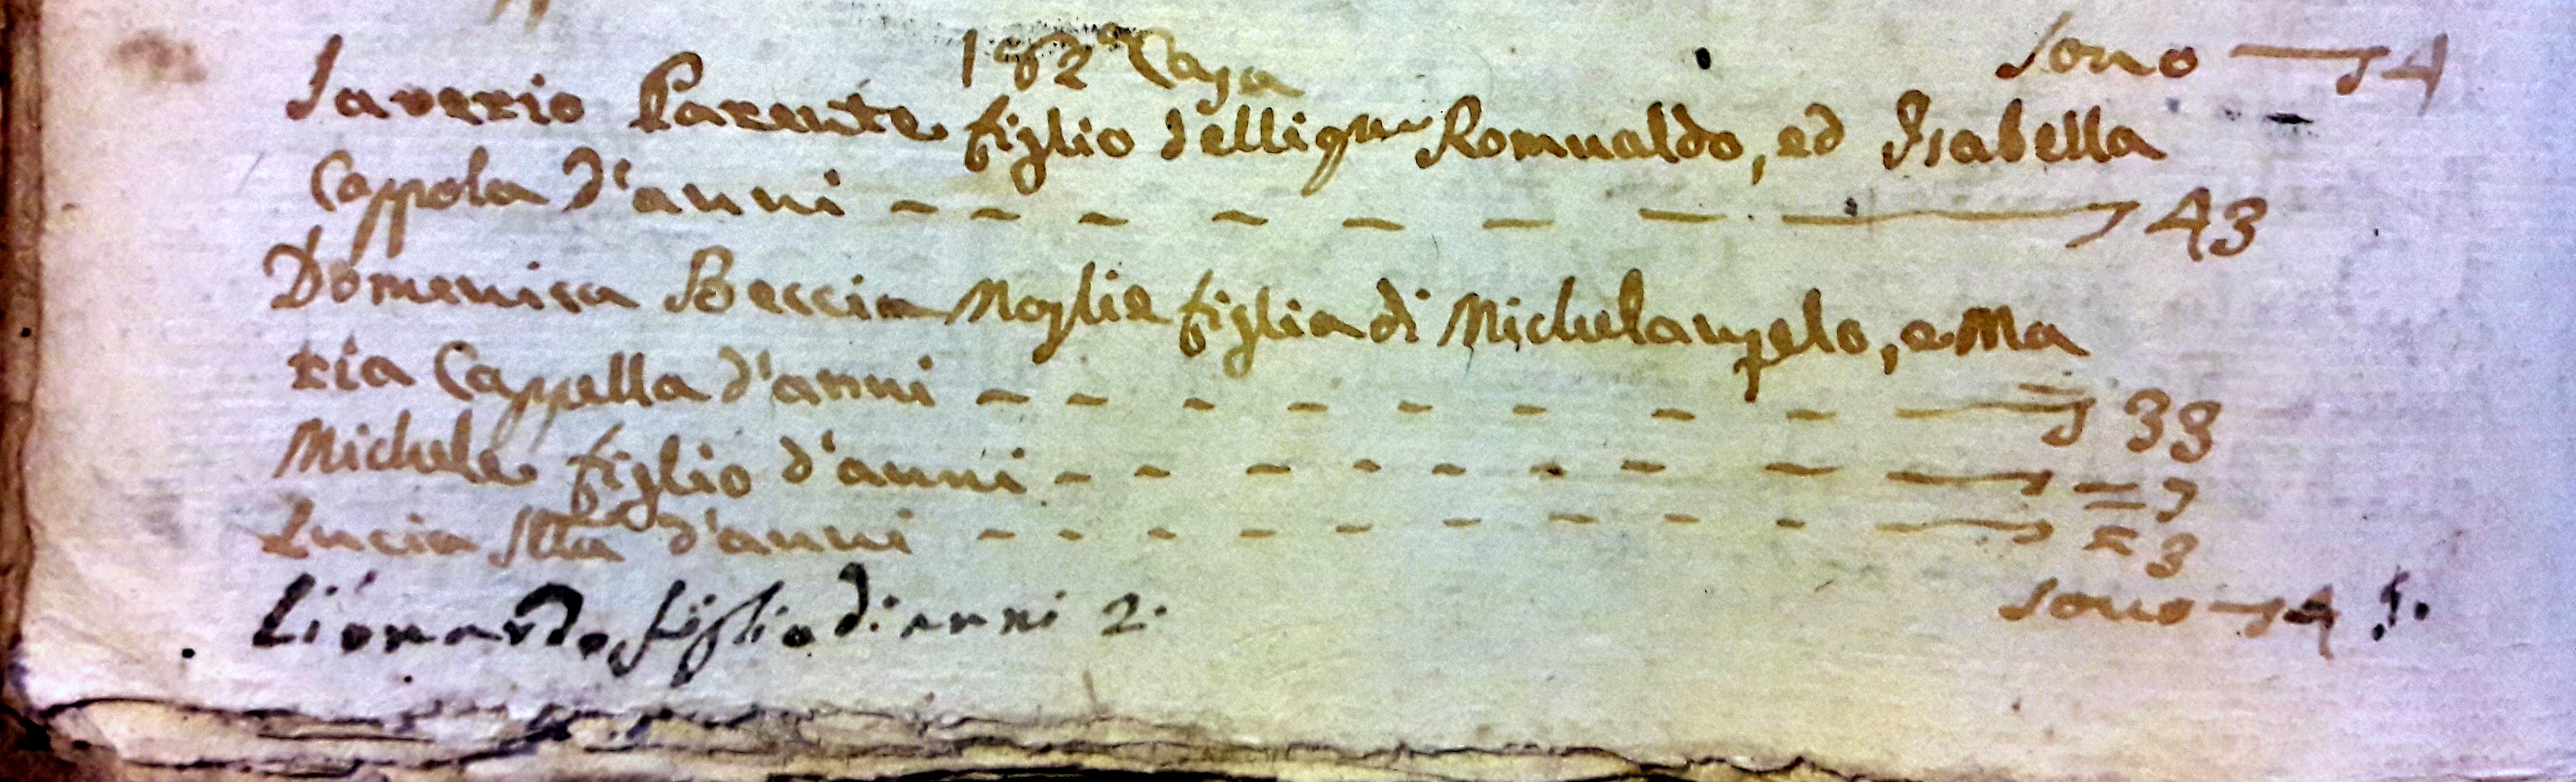 sono — 4
162ª Casa
Saverio Parente figlio delli qm Romualdo, ed Isabella
Cappola d'anni - - - - - - - — 43
Domenica Beccia Moglie figlia di Michelangelo, e Ma
ria Cappella d'anni - - - - - - - - — 38
Michele figlio d'anni - - - - - - - - — = 7
Lucia figlia d'anni - - - - - - - - - — = 3
sono — 4 5.
Lionardo figlio di anni 2.